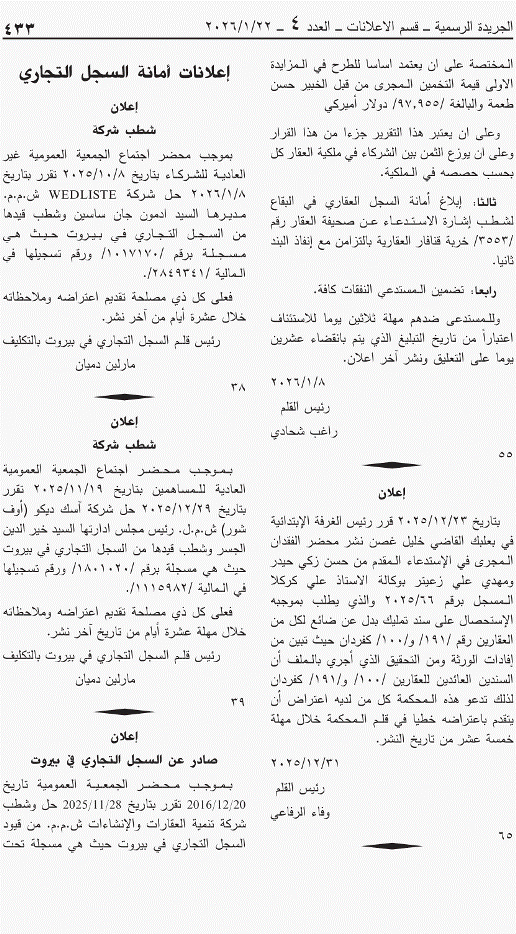 الجريدة الرسمية – قسم الاعلانات – العدد ٤ – ٢٠٢٦/١/٢٢
٤٣٣
المختصة على ان يعتمد اساسا للطرح في المزايدة
الاولى قيمة التخمين المجرى من قبل الخبير حسن
طعمة والبالغة /٩٧,٩٥٥/ دولار أميركي
وعلى ان يعتبر هذا التقرير جزءا من هذا القرار
وعلى ان يوزع الثمن بين الشركاء في ملكية العقار كل
بحسب حصصه في الملكية.
ثالثا: إبلاغ أمانة السجل العقاري في البقاع
لشطب إشارة الاستدعاء عن صحيفة العقار رقم
/٣٥٥٣/ خربة قنافار العقارية بالتزامن مع إنفاذ البند
ثانيا.
رابعا: تضمين المستدعي النفقات كافة.
وللمستدعى ضدهم مهلة ثلاثين يوما للاستئناف
اعتباراً من تاريخ التبليغ الذي يتم بانقضاء عشرين
يوما على التعليق ونشر آخر اعلان.
٢٠٢٦/١/٨
رئيس القلم
راغب شحادي
٥٥
إعلان
بتاريخ ٢٠٢٥/١٢/٢٣ قرر رئيس الغرفة الإبتدائية
في بعلبك القاضي خليل غصن نشر محضر الفقدان
المجرى في الإستدعاء المقدم من حسن زكي حيدر
ومهدي علي زعيتر بوكالة الاستاذ علي كركلا
المسجل برقم ٢٠٢٥/٦٦ والذي يطلب بموجبه
الإستحصال على سند تمليك بدل عن ضائع لكل من
العقارين رقم /١٩١/ و/١٠٠/ كفردان حيث تبين من
إفادات الورثة ومن التحقيق الذي أجري بالملف أن
السندين العائدين للعقارين /١٠٠/ و/١٩١/ كفردان
لذلك تدعو هذه المحكمة كل من لديه اعتراض أن
يتقدم باعتراضه خطيا في قلم المحكمة خلال مهلة
خمسة عشر من تاريخ النشر.
٢٠٢٥/١٢/٣١
رئيس القلم
وفاء الرفاعي
٦٥
إعلانات أمانة السجل التجاري
إعلان
شطب شركة
بموجب محضر اجتماع الجمعية العمومية غير
العادية للشركاء بتاريخ ٢٠٢٥/١٠/٨ تقرر بتاريخ
٢٠٢٦/١/٨ حل شركة WEDLISTE ش.م.م.
مديرها السيد ادمون جان ساسين وشطب قيدها
من السجل التجاري في بيروت حيث هي
مسجلة برقم /١٠١٧١٧٠/ ورقم تسجيلها في
المالية /٢٨٤٩٣٤١/.
فعلى كل ذي مصلحة تقديم اعتراضه وملاحظاته
خلال عشرة أيام من آخر نشر.
رئيس قلم السجل التجاري في بيروت بالتكليف
مارلين دميان
٣٨
إعلان
شطب شركة
بموجب محضر اجتماع الجمعية العمومية
العادية للمساهمين بتاريخ ٢٠٢٥/١١/١٩ تقرر
بتاريخ ٢٠٢٥/١٢/٢٩ حل شركة آسك ديكو (أوف
شور) ش.م.ل. رئيس مجلس ادارتها السيد خير الدين
الجسر وشطب قيدها من السجل التجاري في بيروت
حيث هي مسجلة برقم /١٨٠١٠٢٠/ ورقم تسجيلها
في المالية /١١١٥٩٨٢/.
فعلى كل ذي مصلحة تقديم اعتراضه وملاحظاته
خلال مهلة عشرة أيام من تاريخ آخر نشر.
رئيس قلم السجل التجاري في بيروت بالتكليف
مارلين دميان
٣٩
إعلان
صادر عن السجل التجاري في بيروت
بموجب محضر الجمعية العمومية تاريخ
2016/12/20 تقرر بتاريخ 2025/11/28 حل وشطب
شركة تنمية العقارات والإنشاءات ش.م.م. من قيود
السجل التجاري في بيروت حيث هي مسجلة تحت